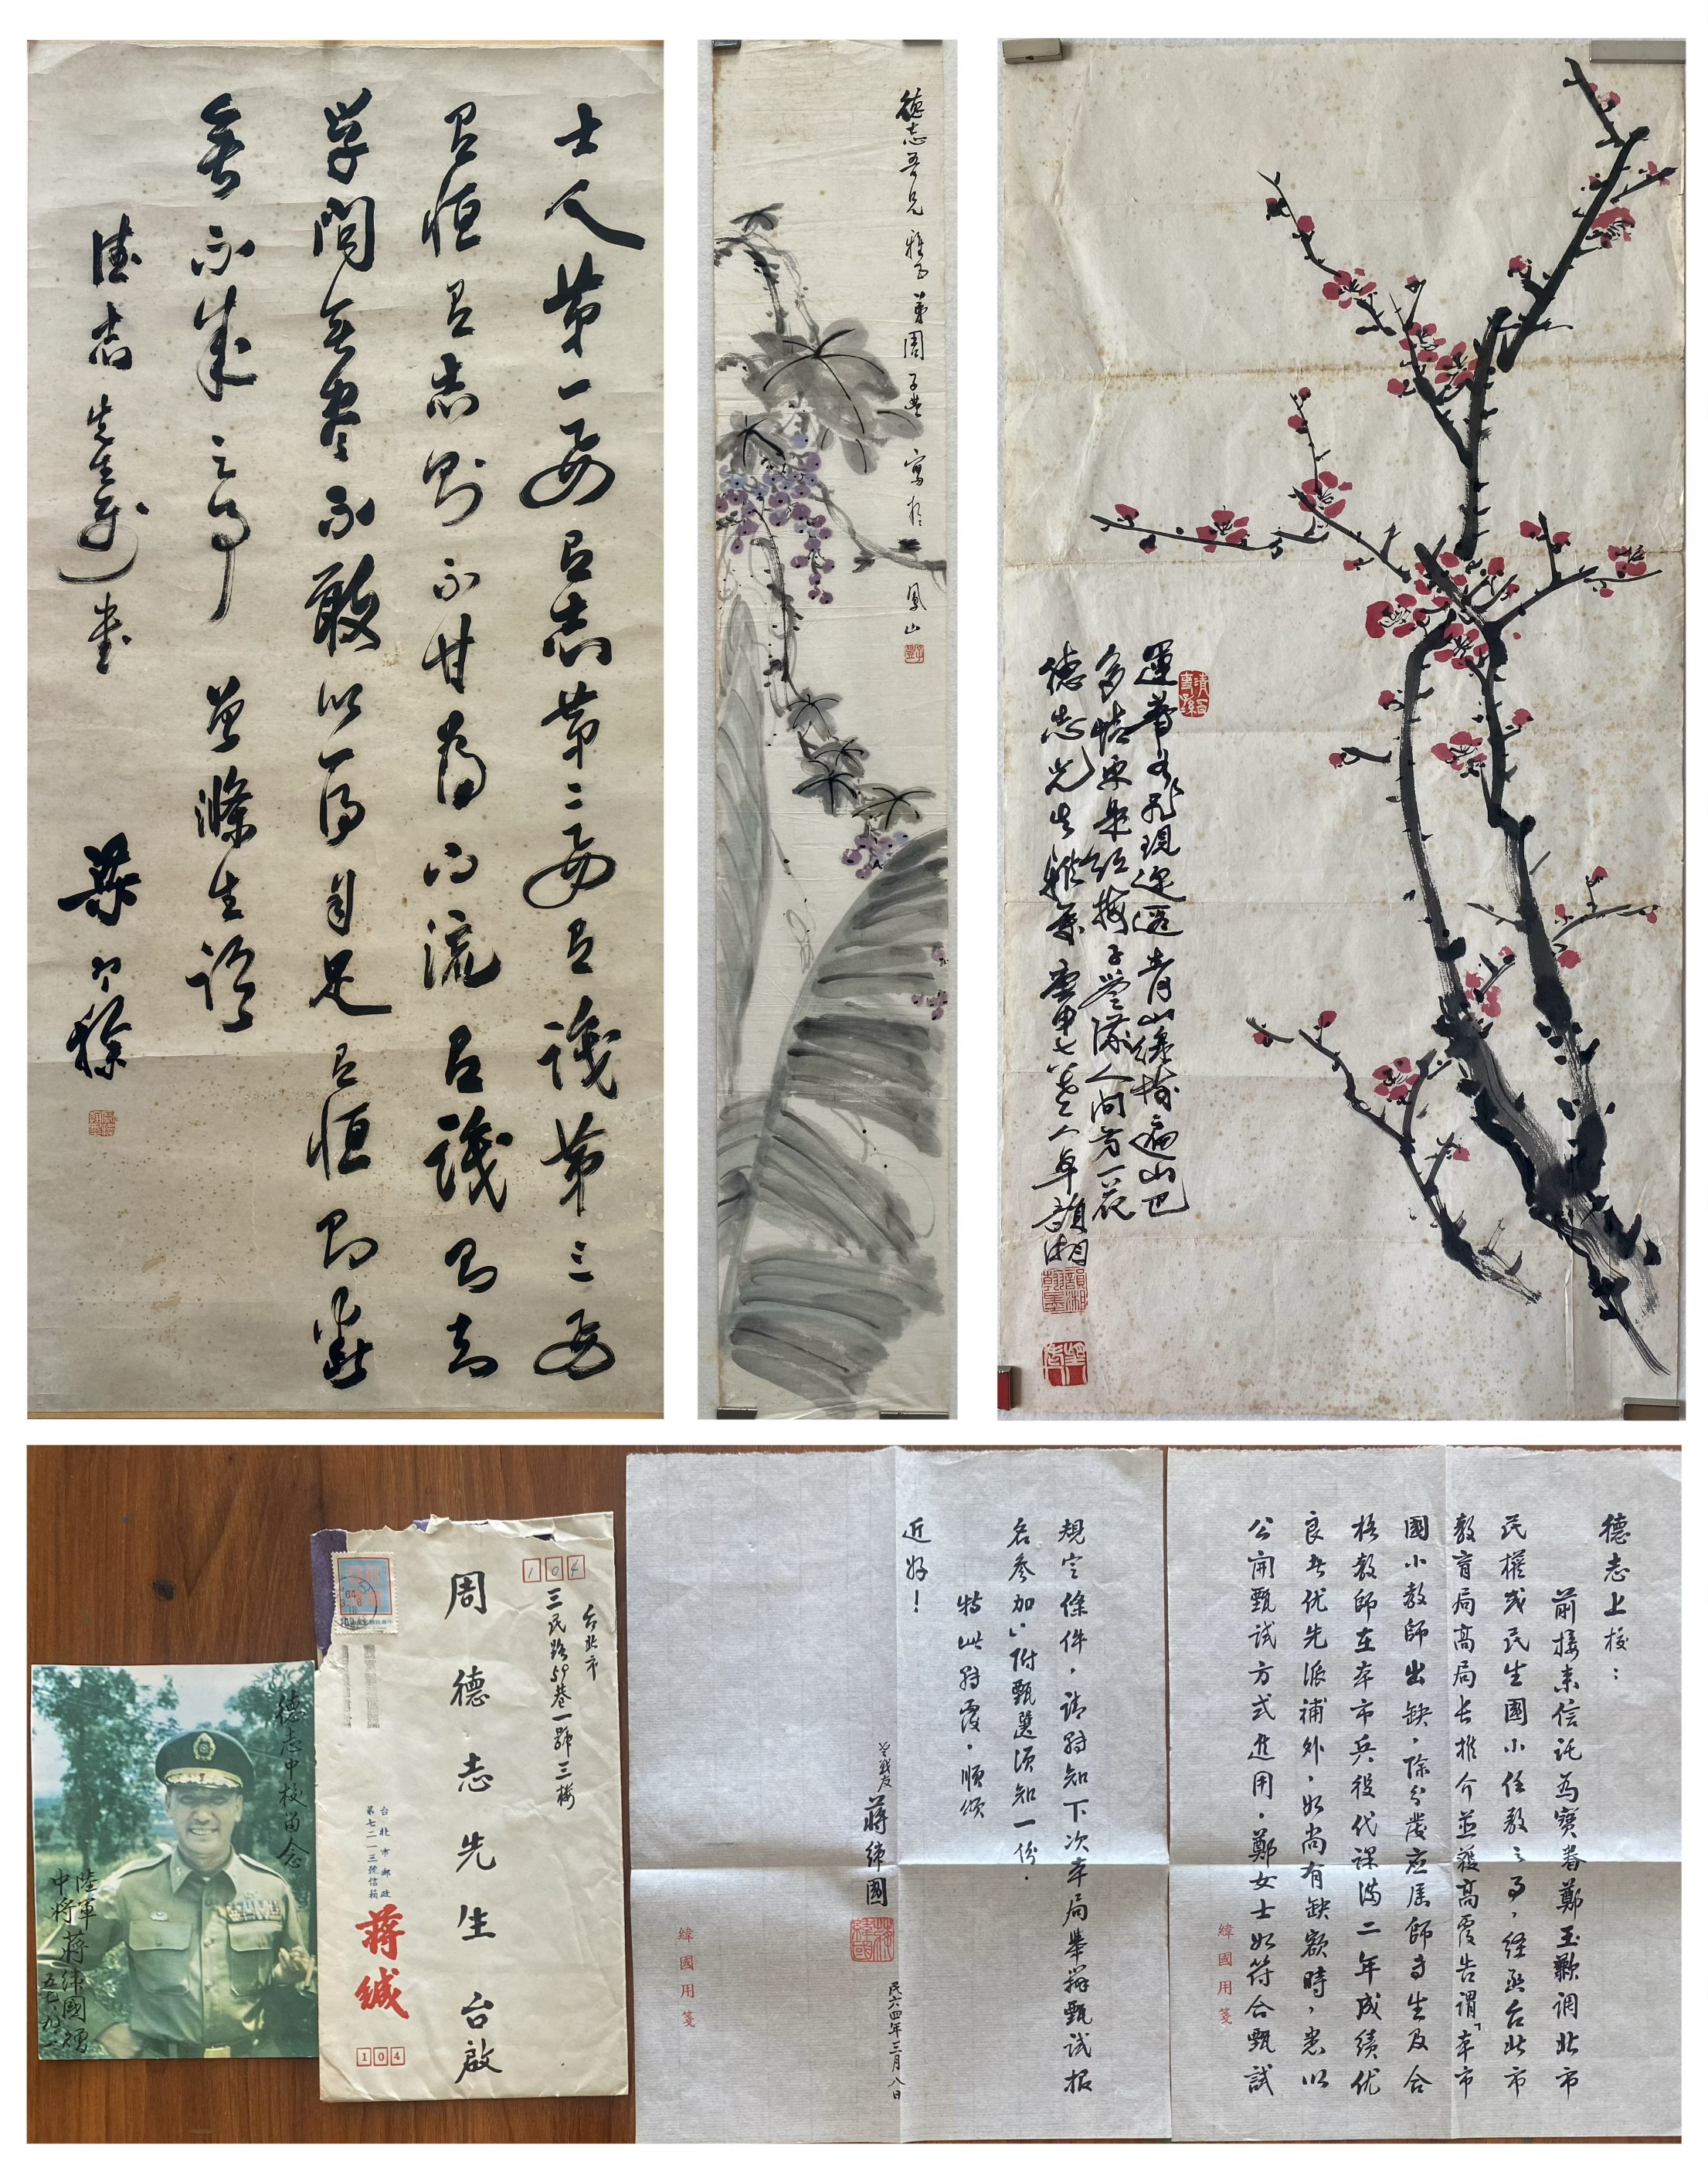 士人第一要有志第二要有識第三要
有恒有志則不甘為下流有識則知
學問無盡不敢以一得自足有恒則斷
無不成之事 曾滌生語
德志先生屬書 梁寒操
德志吾兄雅正 弟周子 寫於鳳山
現 青山綠樹遍山
多情 紅梅 人間第一花
德志先生雅屬 庚申 卓韻湘
韻湘翰墨
德志中校留念
陸軍
中將 蔣緯國贈
五七、九、一
104
台北市
三民路59巷一號三樓
周德志先生 台啟
台北市郵政
第七二一三號信箱
蔣緘
104
德志上校：
前接來信託為寶眷鄭玉歡調北市
民權或民生國小任教之事，經函台北市
教育局高局長推介並獲高覆告謂「本市
國小教師出缺，除分發應屆師專生及合
格教師在本市兵役代課滿二年成績优
良者优先派補外，如尚有缺額時，悉以
公開甄試方式進用，鄭女士如符合甄試
緯國用箋
規定條件，請轉知下次本局舉辦甄試報
名參加」附甄選須知一份。
特此轉覆，順頌
近好！
蔣緯國
民六四年三月八日
緯國用箋